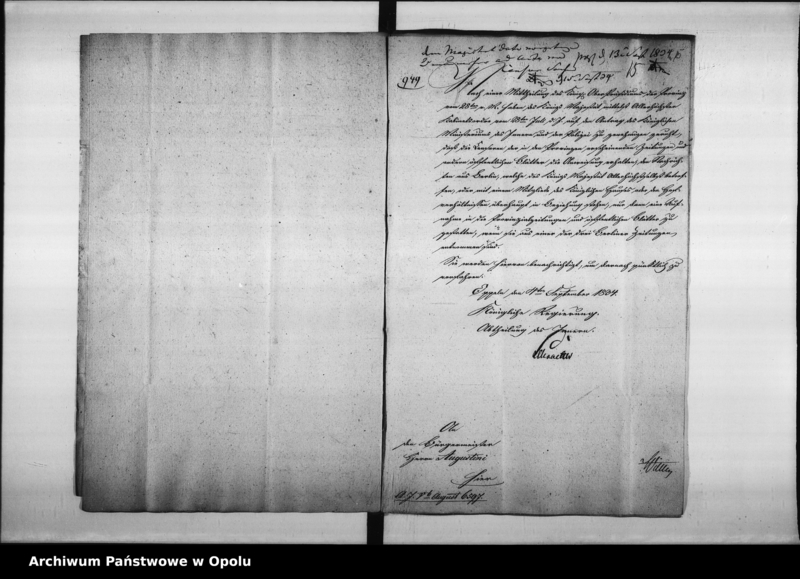 dem Magistrat
præs. d. 13 Sept 1834
949
Nach einer Mittheilung des Königl. Oberpräsidiums der Provinz
vom v. M. haben des Königs Majestät mittelst Allerhöchster
Kabinetsordre vom Juli d. J. auf den Antrag des Königlichen
Ministeriums des Innern und der Polizei zu genehmigen geruht,
daß die Censoren der in den Provinzen erscheinenden Zeitungen und
andern öffentlichen Blätter die Anweisung erhalten, den Nachrich-
ten aus Berlin, welche des Königs Majestät Allerhöchstselbst betref-
fen, oder mit einem Mitgliede des Königlichen Hauses, oder den Hof-
verhältnissen überhaupt in Beziehung stehen, nur dann eine Auf-
nahme in die Provinzialzeitungen und öffentlichen Blätter zu
gestatten, wenn sie aus einer der drei Berliner Zeitungen
entnommen sind.
Sie werden hiervon benachrichtigt, um darnach pünktlich zu
verfahren.
Oppeln, den 4ten September 1834.
Königliche Regierung.
Abtheilung des Innern.
An
den Bürgermeister
Herrn Augustini
hier
August 6397.
Archiwum Państwowe w Opolu